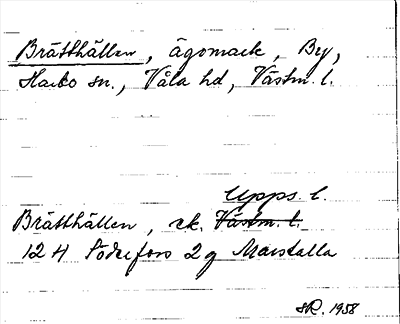 Brätthällen, ägomark, By,
Harbo sn., Våla hd, Västm. l.
Upps. l.
Brätthällen, ek. Västm. l.
12 H Söderfors 2 g Marstalla
SR. 1958